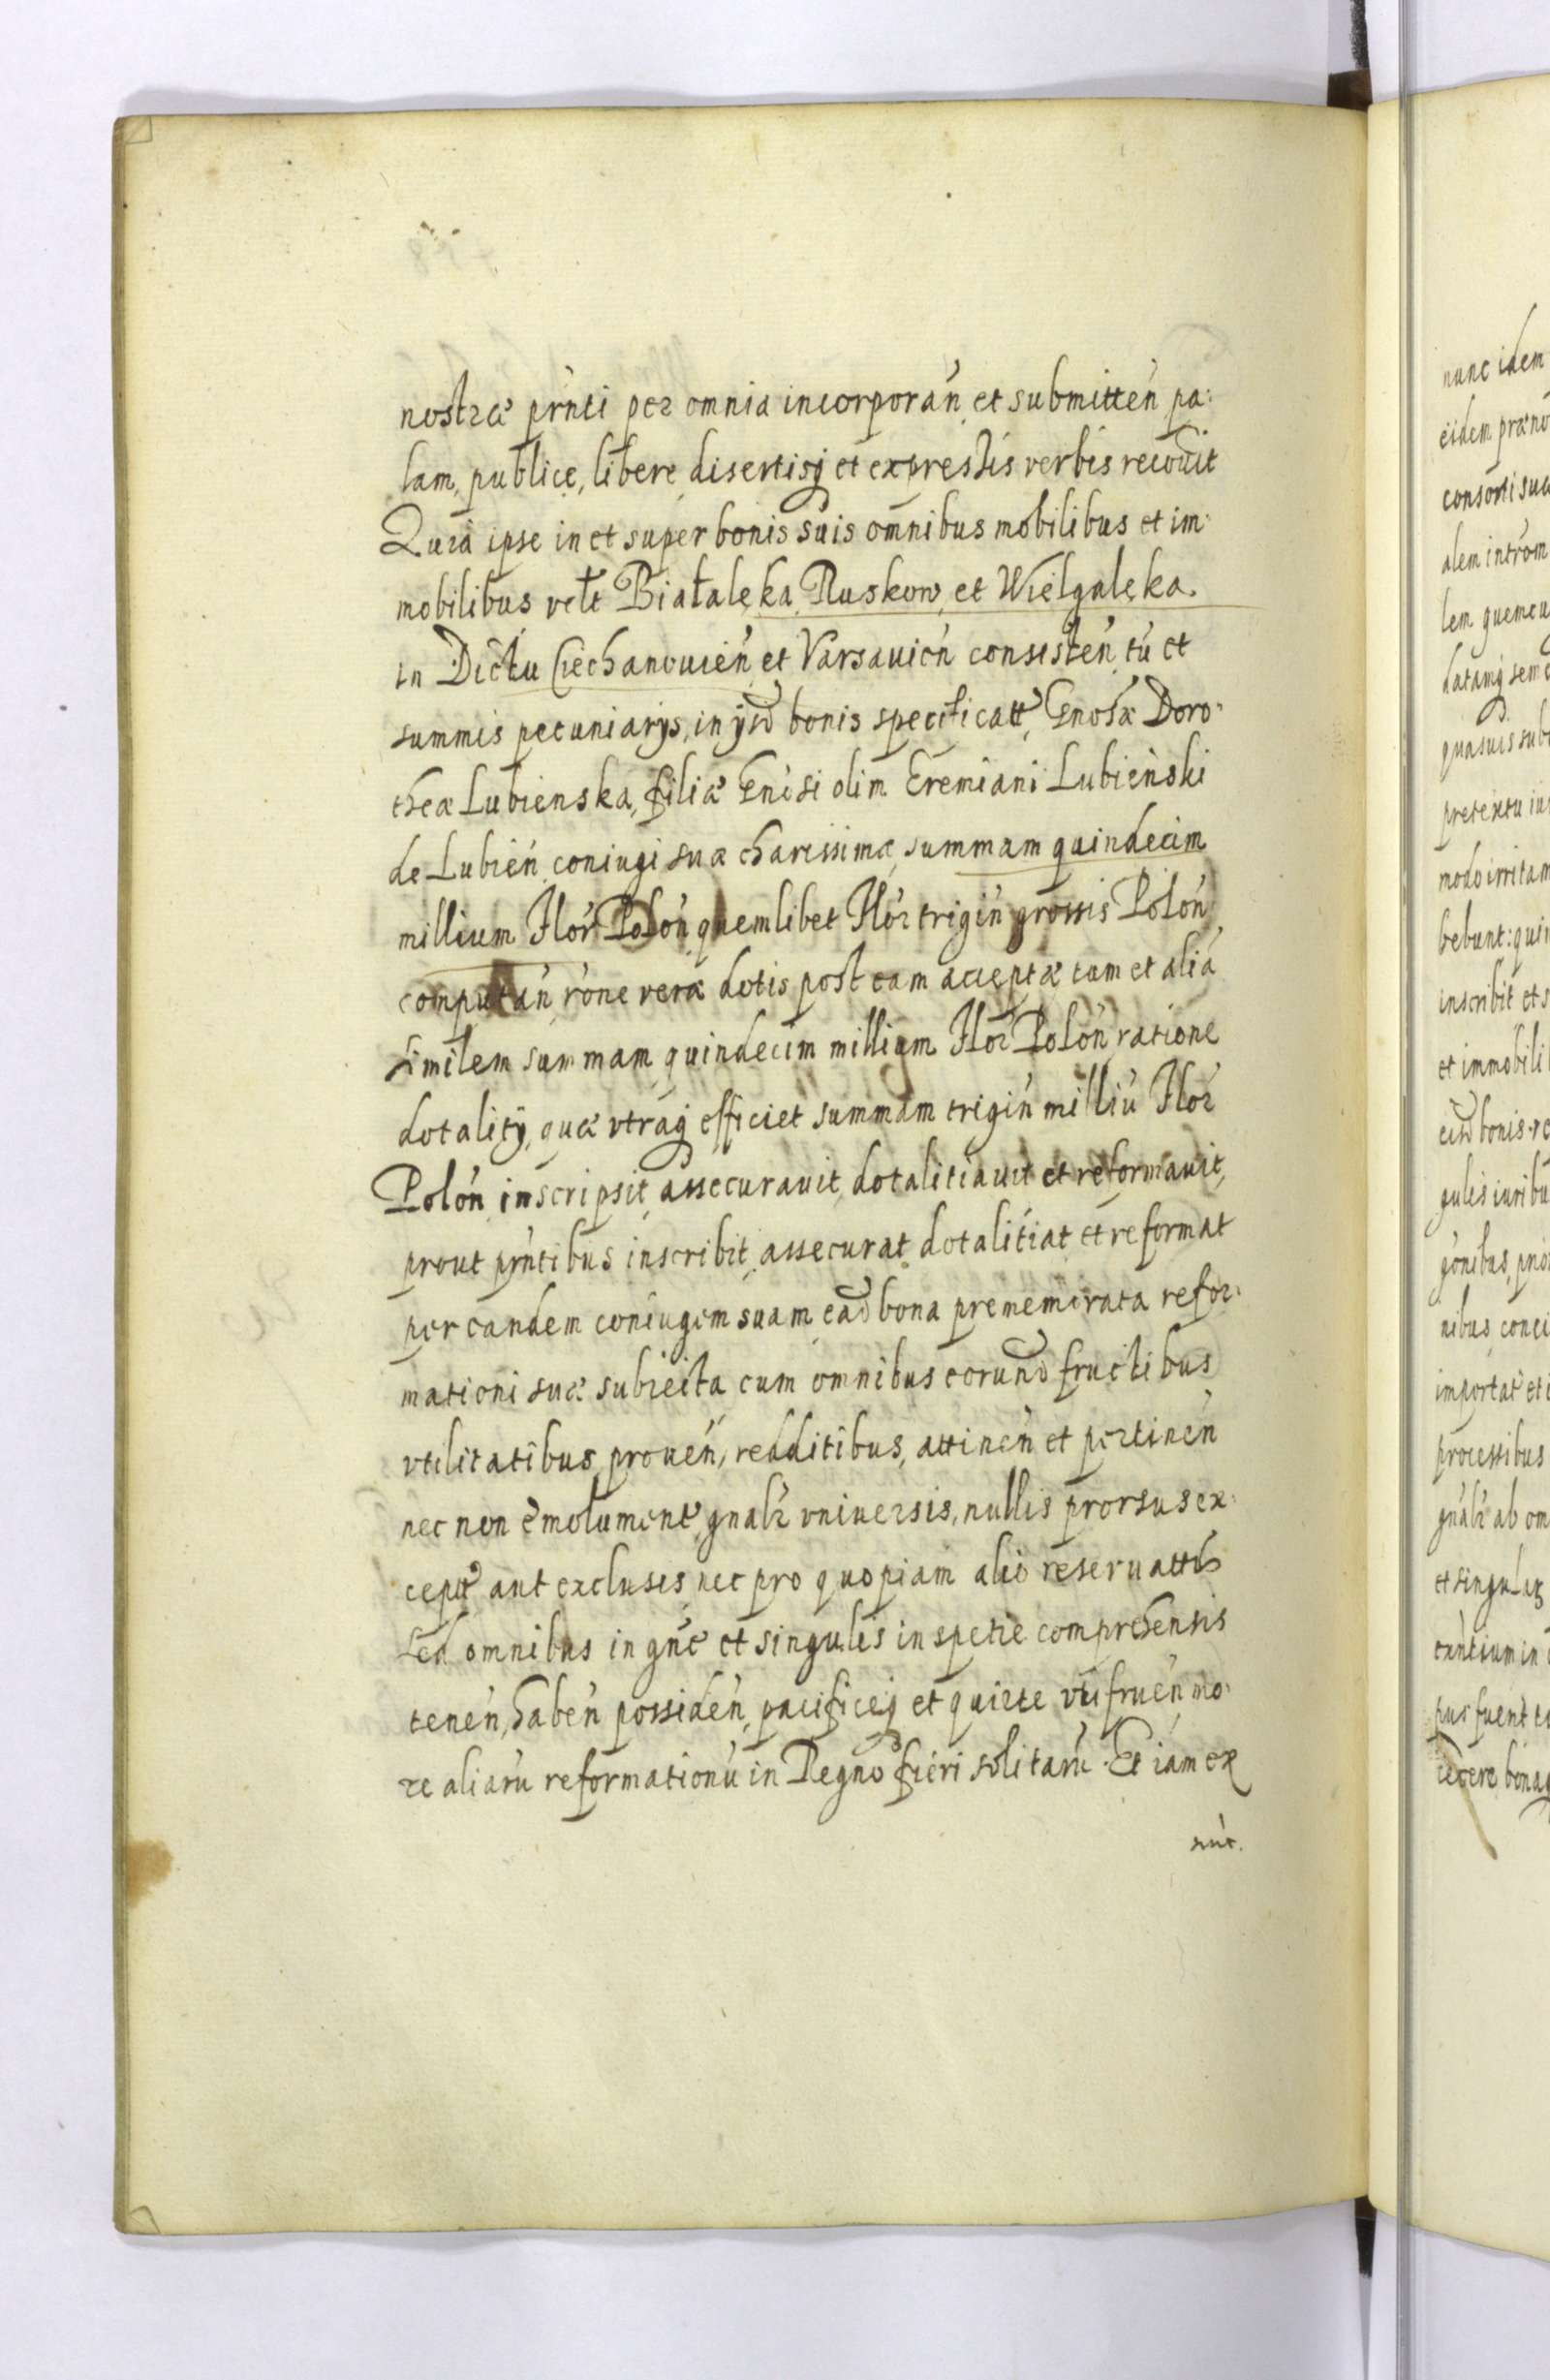 nostræ prńti per omnia incorporań et submitteń pa:
lam, publice, libere disertisq et expressis verbis recovit
Quia ipse in et super bonis suis omnibus mobilibus et im:
mobilibus vclt Białalęka Ruskow et Wielgalęka.
in Dictu Ciechanouień et Varsauień consisteń tú et
summis pecuniarijs, in ijsd bonis specificatt, Gnosæ Doro:
theæ Lubienska, filiæ Gnisi olim Eremiani Lubieński
de Lubień coniugi suæ charissimæ summam quindecim
millium Flor Poloń quemlibet Flor trigiń grossis Poloń
computań rone veræ dotis post eam acceptæ tum et aliá
similem summam quindecim millium Flor Poloń ratione
dotalitij, quæ vtraq efficiet summam trigiń milliú Flor
Poloń inscripsit assecurauit, dotalitiauit et reformauit,
prout prńtibus inscribit assecurat dotalitiat et reformat
per eandem coniugem suam ead bona prememorata refor:
mationi suæ subiecta cum omnibus eorund fructibus
vtilitatibus, proueń, redditibus, attineń et pertineń
nec non emolument, gnalr vniuersis, nullis prorsus ex:
cept aut exclusis nec pro quopiam alio reseruattis
sed omnibus in gńe et singulis in specie comprehensis
teneń, habeń possideń, pacificeq et quiete vti frueń, mo:
re aliarú reformationú in Regno fieri solitarú. Et iam ex
núc.
nunc idem
eidem præno
consorti suæ
alem introm
lem quemcu
datamq sem
quasuis sub
pretextu iu
modo irritam
bebunt: qui
inscribit et s
et immobili
eisd bonis re
gulis iuribu
gonibus, prio
nibus conci
importat et i
processibus
gnalr ab om
et singular
pus fuent
cedere bona